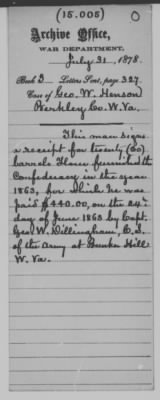 (15.005)
0
Archive Office,
WAR DEPARTMENT,
July 31, 1878.
Book D Letters Sent, page 327.
Case of Geo. W. Henson
Berkley Co. W. Va.
This man signs
a receipt for twenty (20)
barrels Flour furnished the
Confederacy in the year
1863, for which he was
paid $440.00, on the 24th
day of June 1863 by Capt.
Geo. W. Dillingham, C.S.
of the Army at Bunker Hill
W. Va.